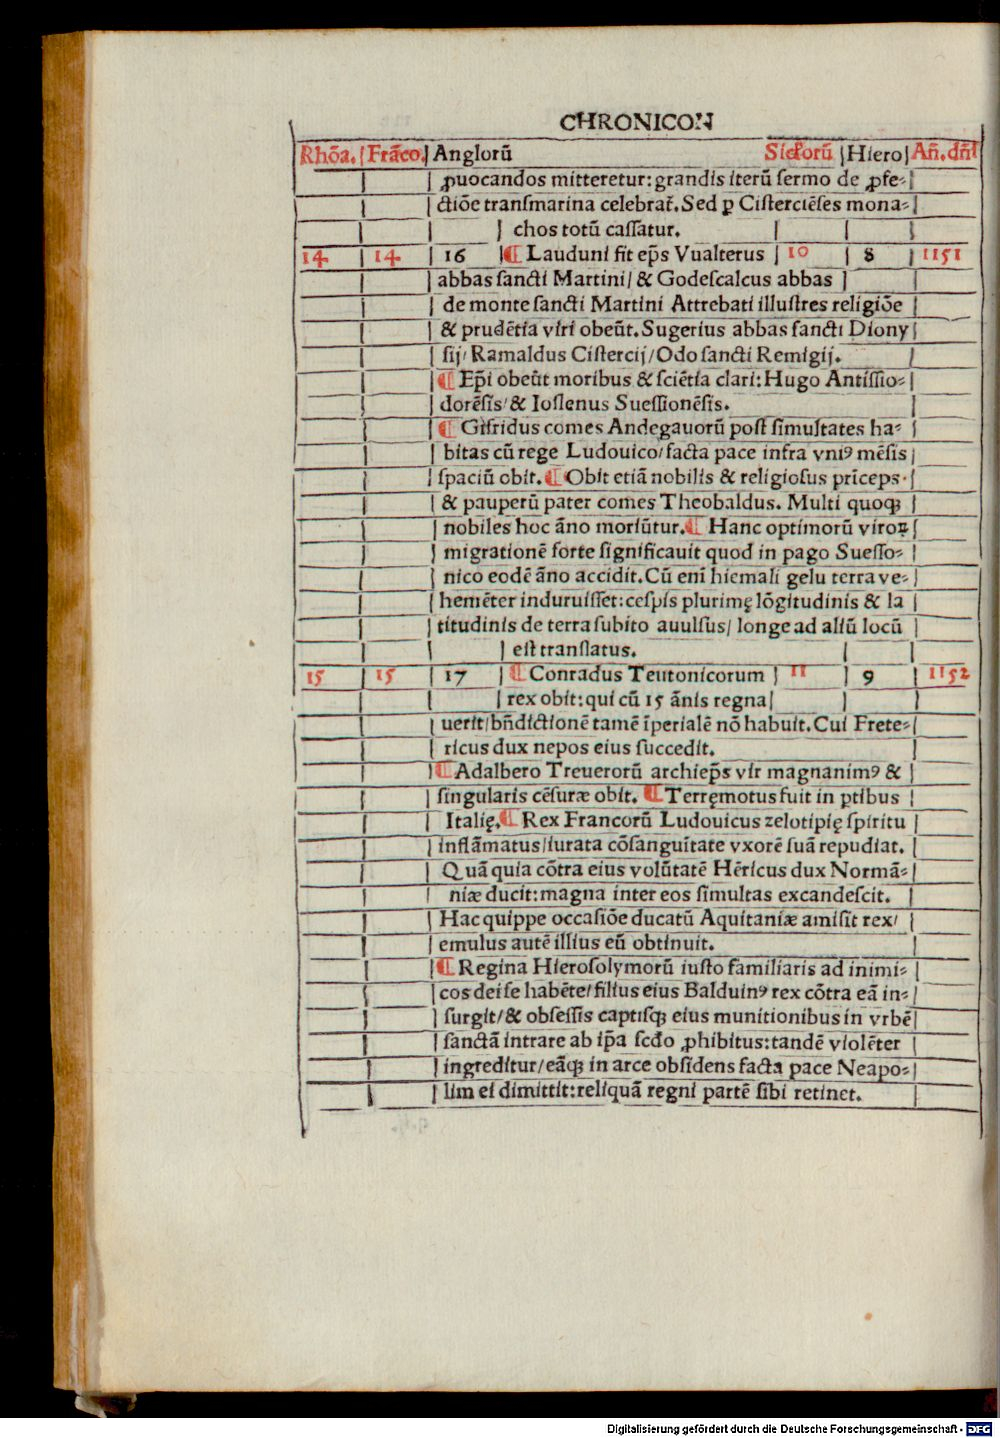 CHRONICON
Rhōa. Frāco. Anglorū Siclorū Hiero Añ.dñi
ꝓuocandos mitteretur: grandis iterū ſermo de ꝓfe⸗
ctiōe tranſmarina celebrat̃. Sed ꝑ Ciſterciēſes mona⸗
chos totū caſſatur.
14 14 16 ¶ Lauduni fit ep̄s Vualterus 10 8 1151
abbas ſancti Martini/ & Godeſcalcus abbas
de monte ſancti Martini Attrebati illuſtres religiōe
& prudētia viri obeūt. Sugerius abbas ſancti Diony
ſij/ Ramaldus Ciſtercij/ Odo ſancti Remigij.
¶ Ep̄i obeūt moribus & ſciētia clari: Hugo Antiſſio⸗
dorēſis/ & Ioſlenus Sueſſionēſis.
¶ Giſridus comes Andegauorū poſt ſimultates ha⸗
bitas cū rege Ludouico/ facta pace infra vniꝰ mēſis
ſpaciū obit. ¶ Obit etiā nobilis & religioſus prīceps
& pauperū pater comes Theobaldus. Multi quoqꝫ
nobiles hoc āno moriūtur. ¶ Hanc optimorū viroꝝ
migrationē forte ſignificauit quod in pago Sueſſo⸗
nico eodē āno accidit. Cū enī hiemali gelu terra ve⸗
hemēter induruiſſet: ceſpis plurimę lōgitudinis & la
titudinis de terra ſubito auulſus/ longe ad aliū locū
eſt tranſlatus.
15 15 17 ¶ Conradus Teutonicorum 11 9 1152
rex obit: qui cū 15 ānis regna
uerit/ bn̄dictionē tamē īperialē nō habuit. Cui Frete⸗
ricus dux nepos eius ſuccedit.
¶ Adalbero Treuerorū archiep̄s vir magnanimꝰ &
ſingularis cēſuræ obit. ¶ Terręmotus fuit in ꝑtibus
Italię. ¶ Rex Francorū Ludouicus zelotipię ſpiritu
inflāmatus/ iurata cōſanguītate vxorē ſuā repudiat.
Quā quia cōtra eius volūtatē Hēricus dux Normā⸗
niæ ducit: magna inter eos ſimultas excandeſcit.
Hac quippe occaſiōe ducatū Aquitaniæ amiſit rex/
emulus autē illius eū obtinuit.
¶ Regina Hieroſolymorū iuſto familiaris ad inimi⸗
cos dei ſe habēte/ filius eius Balduinꝰ rex cōtra eā in⸗
ſurgit/ & obſeſſis captiſqꝫ eius munitionibus in vrbē
ſanctā intrare ab ip̄a ſcd̄o ꝓhibitus: tandē violēter
ingreditur/ eāqꝫ in arce obſidens facta pace Neapo⸗
lim ei dimittit: reliquā regni partē ſibi retinet.
Digitalisierung gefördert durch die Deutsche Forschungsgemeinschaft - DFG